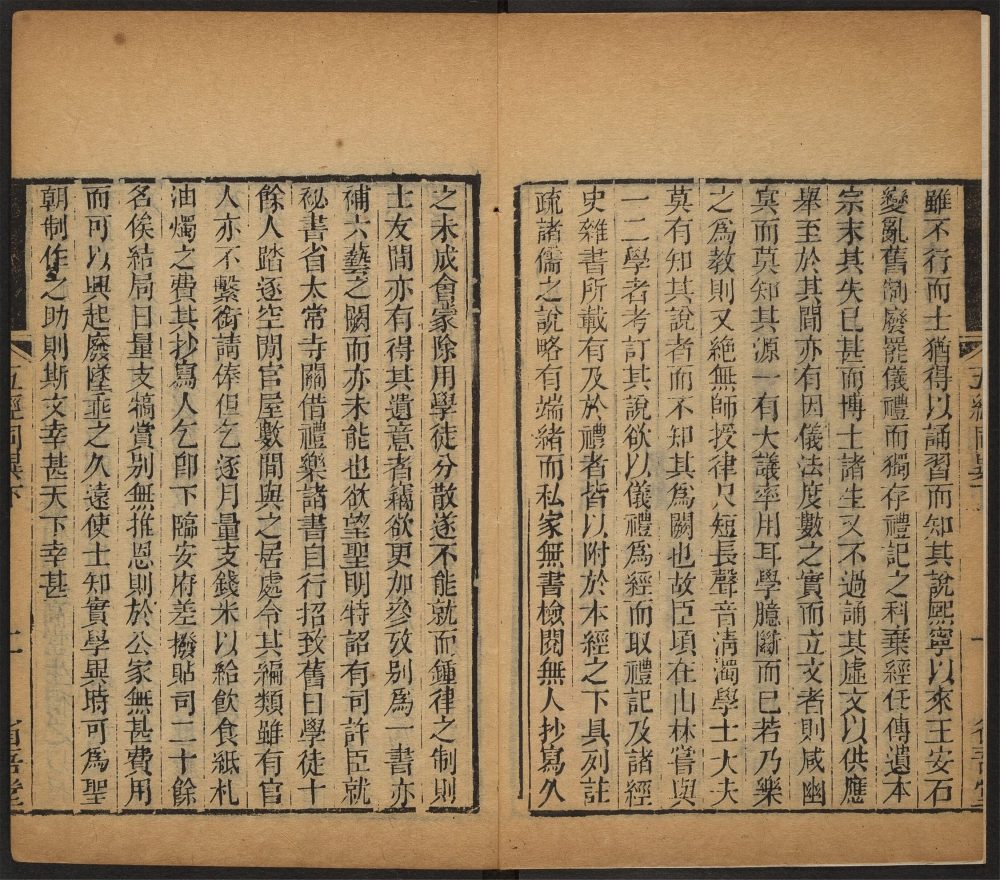 雖不行而士猶得以誦習而知其說熙寧以來王安石
變亂舊制廢罷儀禮而獨存禮記之科棄經任傳遺本
宗末其失已甚而博士諸生又不過誦其虛文以供應
舉至於其間亦有因儀法度數之實而立文者則咸幽
冥而莫知其源一有大議率用耳學臆斷而已若乃樂
之為教則又絕無師授律尺短長聲音淸濁學士大夫
莫有知其說者而不知其為闕也故臣頃在山林嘗與
一二學者考訂其說欲以儀禮為經而取禮記及諸經
史雜書所載有及於禮者皆以附於本經之下具列註
疏諸儒之說略有端緒而私家無書檢閱無人抄寫久
之未成會蒙除用學徒分散遂不能就而鍾律之制則
士友間亦有得其遺意者竊欲更加參攷别為一書亦
補六藝之闕而亦未能也欲望聖明特詔有司許臣就
祕書省太常寺關借禮樂諸書自行招致舊日學徒十
餘人踏逐空閒官屋數間與之居處令其編類雖有官
人亦不繫銜請俸但乞逐月量支錢米以給飲食紙札
油燭之費其抄寫人乞卽下臨安府差撥貼司二十餘
名俟結局日量支犒賞别無推恩則於公家無甚費用
而可以興起廢墜垂之久遠使士知實學異時可為聖
朝制作之助則斯文幸甚天下幸甚
五經同異下